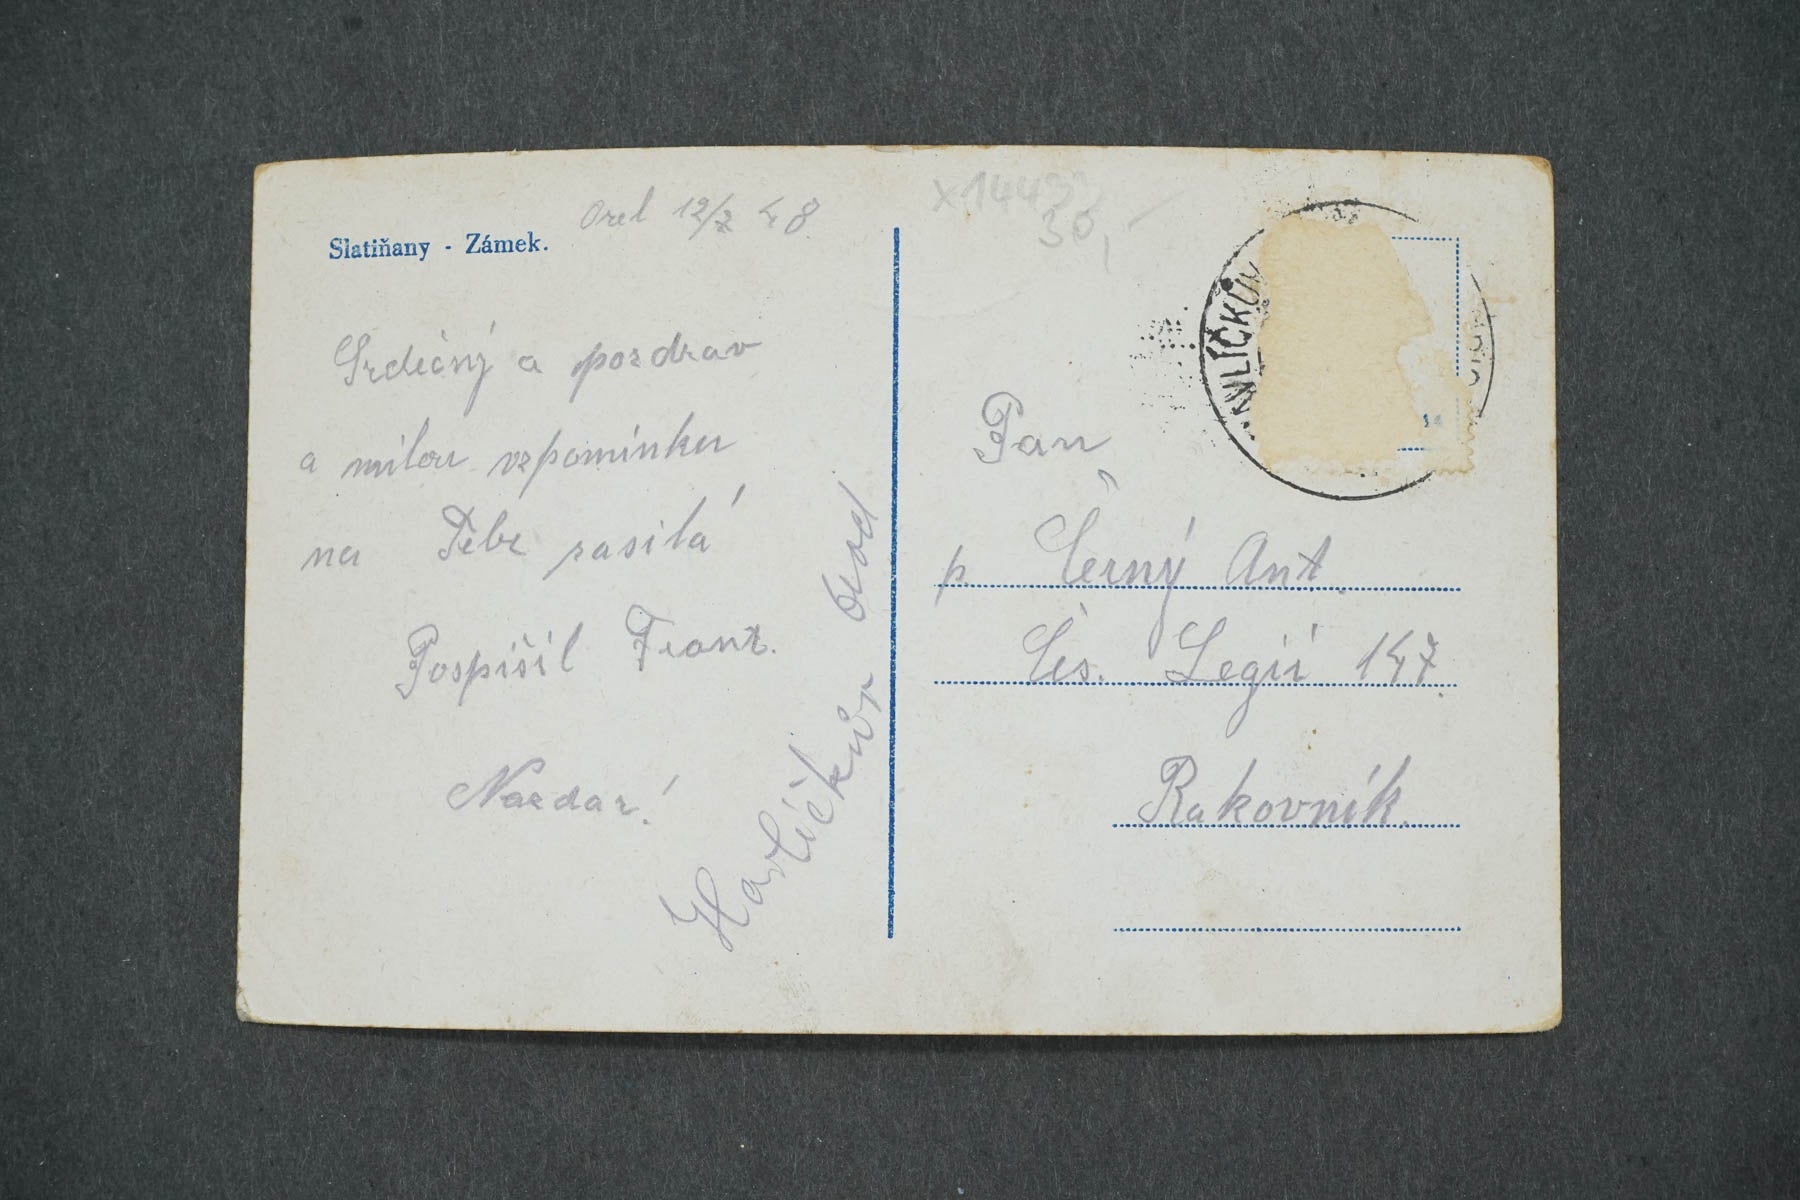 Orel 12/7 48
Slatiňany - Zámek.
Srdečný a pozdrav
a milou vzpomínku
na Tebe zasilá
Pospíšil Frant.
Nazdar!
Havlíčkův Brod
x1443
30,-
HAVLÍČKŮV
Pan
p. Černý Ant.
Čs. Legií 147.
Rakovník.